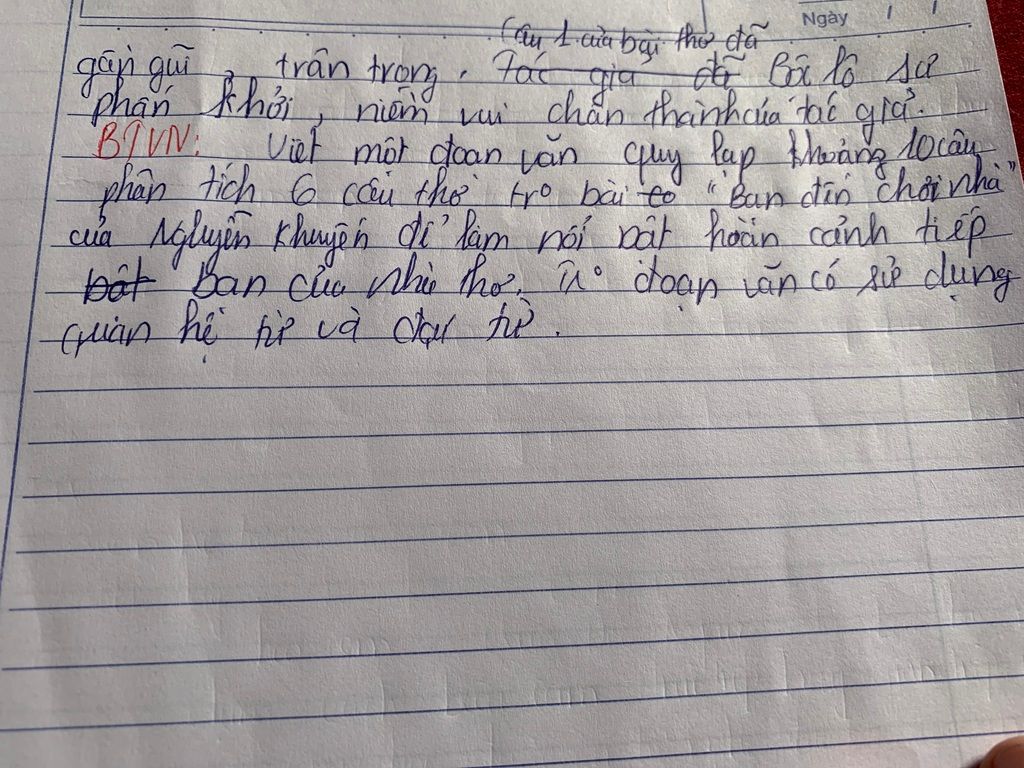 Ngày / /
Câu 1 của bài thơ đã
gần gũi, trân trọng. Tác giả đã Bôi lô sự
phấn khởi, niềm vui chân thành của tác giả.
BTVN: Viết một đoạn văn quy lạp khoảng 10 câu
phân tích 6 câu thơ trº bài to "Bạn đến chơi nhà"
của Nguyễn Khuyến để làm nổi bật hoàn cảnh tiếp
bất bạn của nhà thơ. Trº đoạn văn có sử dụng
quan hệ từ và đại từ.